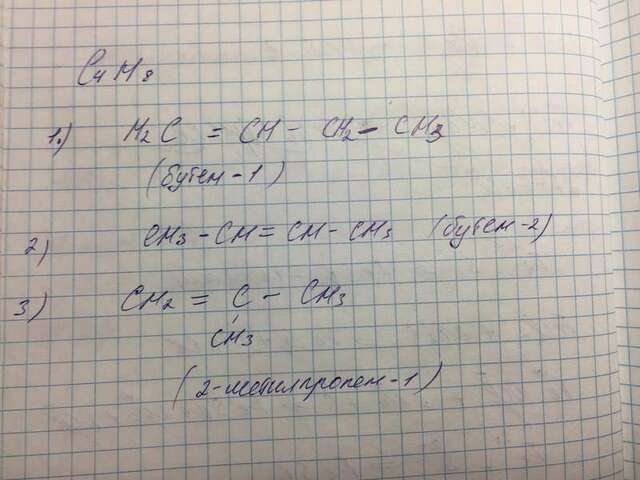 C4H8
1.) H2C = CH - CH2 = CH3
(бутен-1)
2) CH3 - CH = CH - CH3 (бутен-2)
3) CH2 = C - CH3
CH3
(2-метилпропен-1)